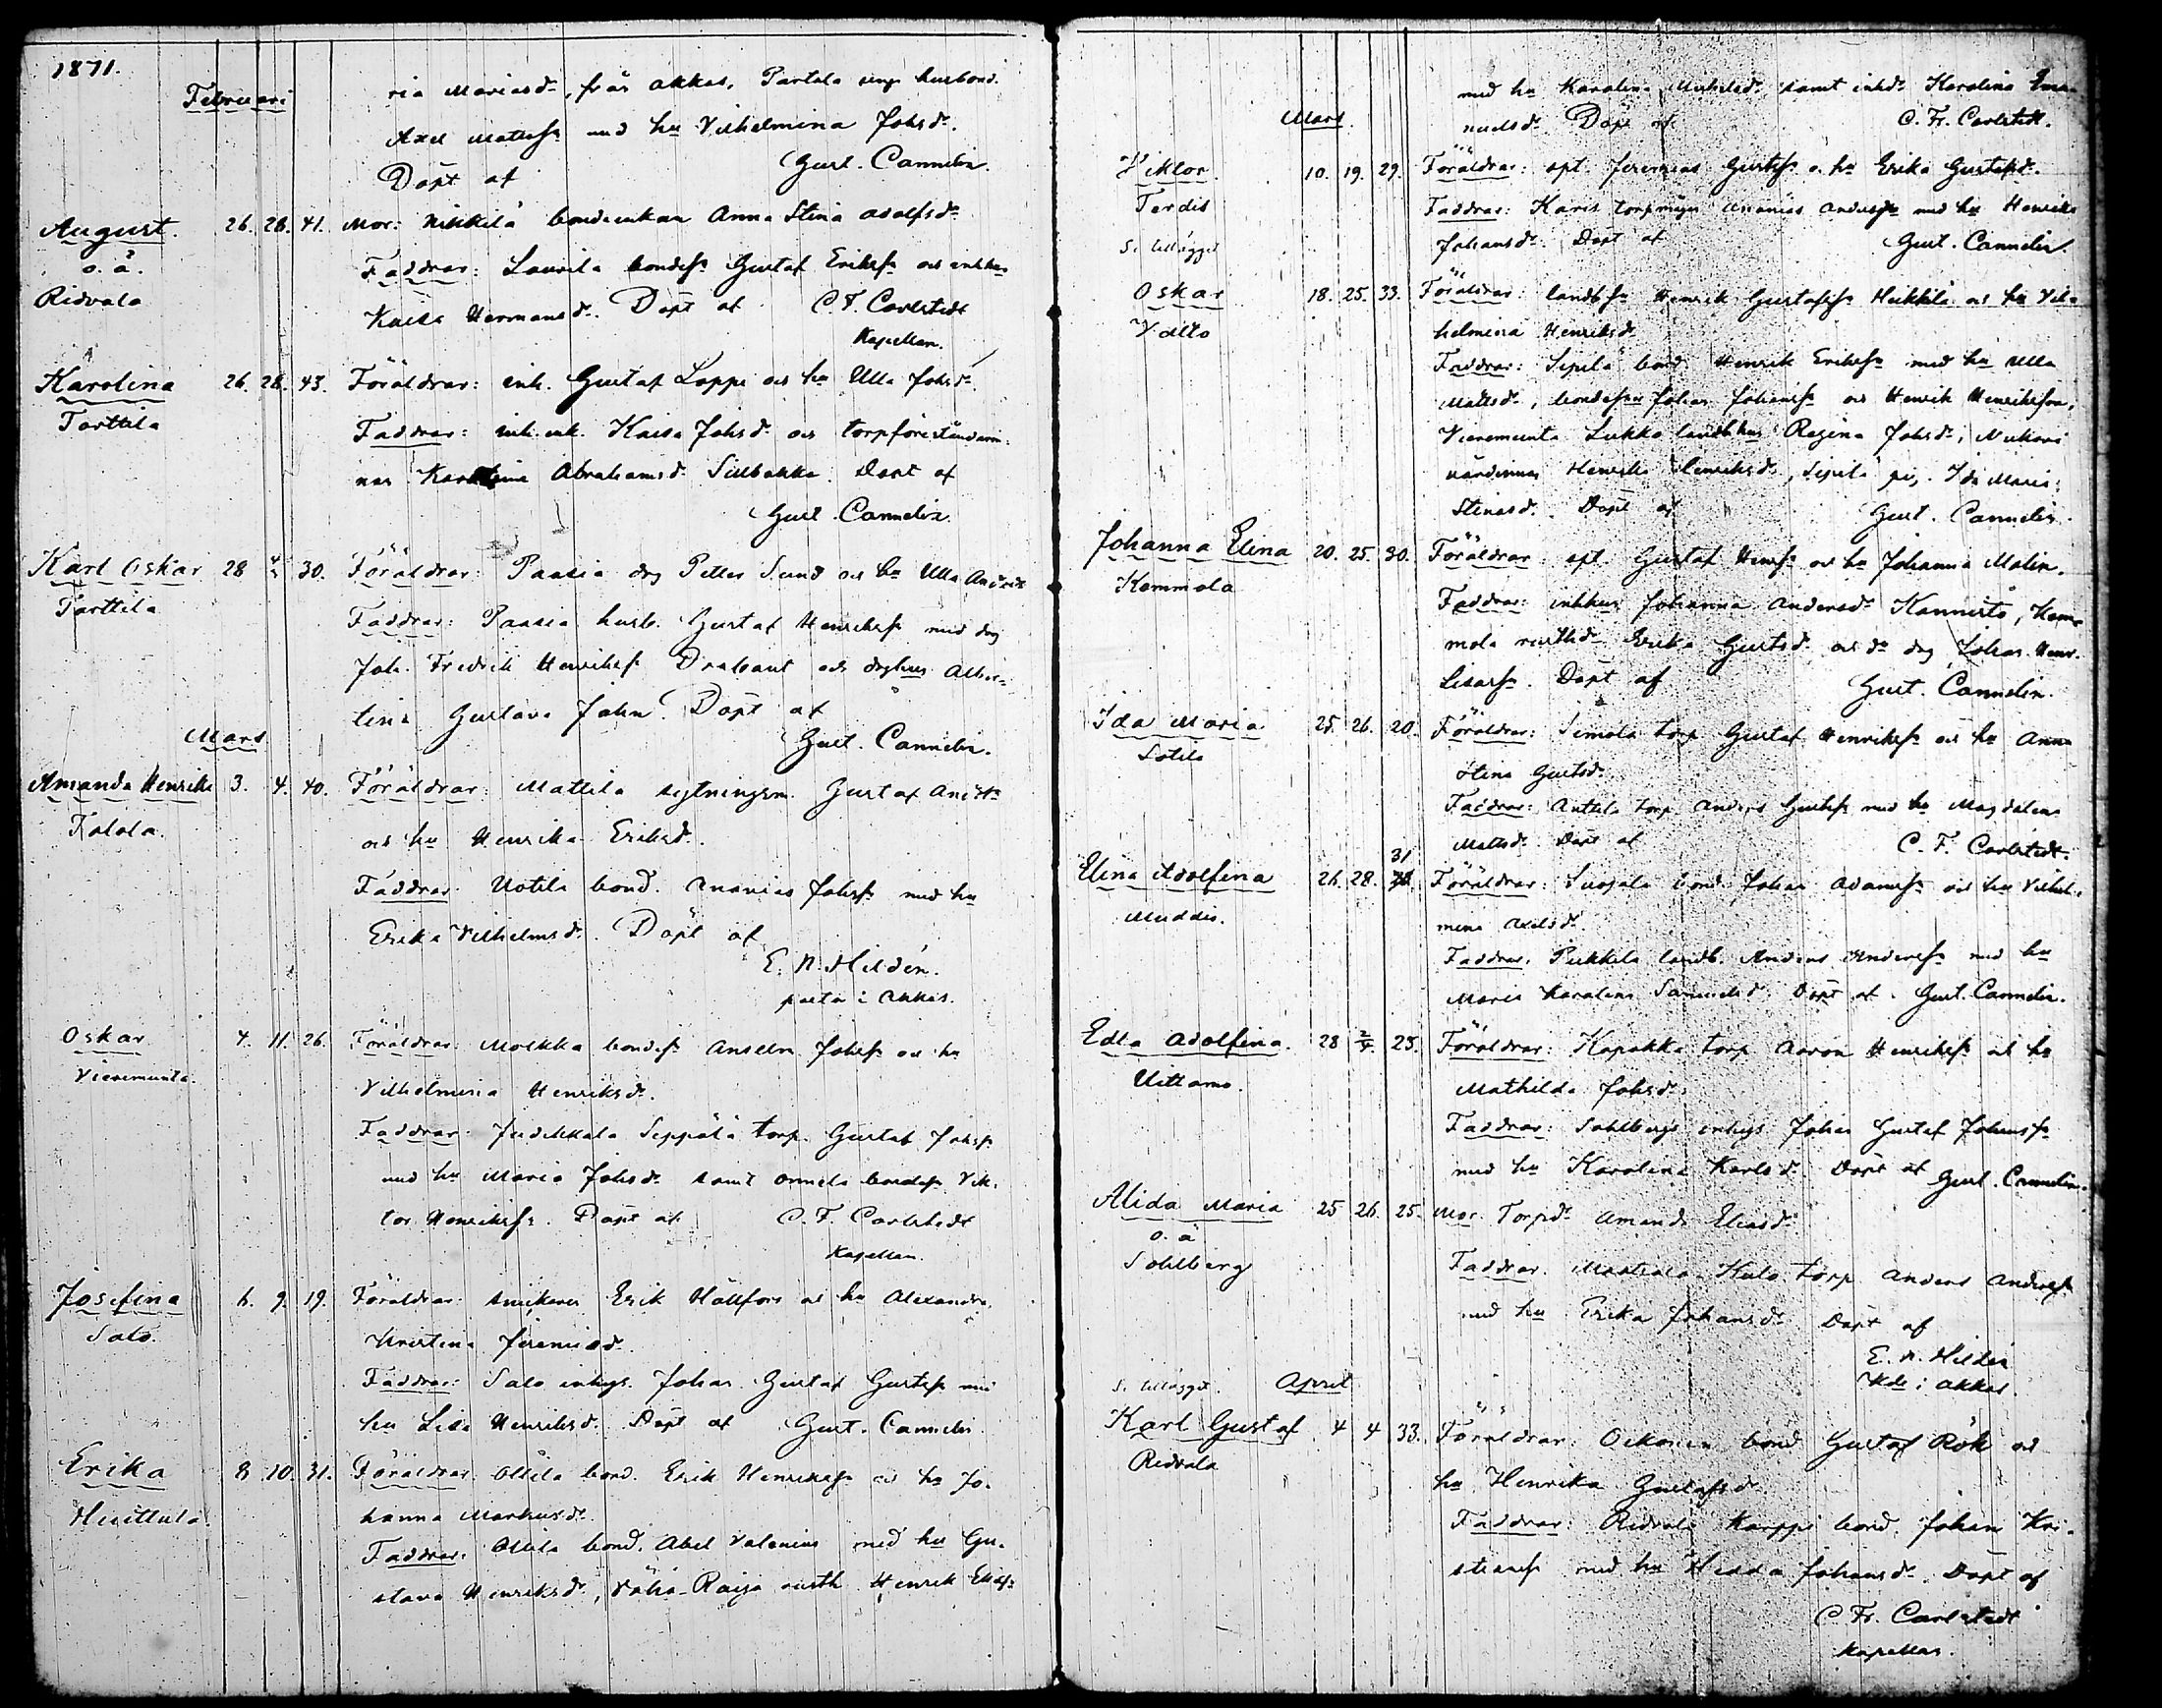 1871.
Februari
ria Mariasd., från Akkas, Partola unge husbond.
Axel Mattss. med hu Vilhelmina Johsd.
Döpt af Gust. Cannelin.
August. 26. 28. 41. Mor: Nikkilä bondeenkan Anna Stina Adolfsd.
o. ä. Faddrar: Laurila bondes. Gustaf Erikss. och
Ridvala Kaisa Hermansd. Döpt af C. F. Carlstedt
Kapellan.
Karolina 26. 28. 43. Föräldrar: inh. Gustaf Loppi och hu Ulla Johsd.
Tarttila Faddrar: inh. enk. Kaisa Johsd. och torpföreståndarin-
nan Karolina Abrahamsd. Sillbakka. Döpt af
Gust. Cannelin.
Karl Oskar 28 30. Föräldrar: Paasia drg Petter Sund och hu Ulla
Tarttila Faddrar: Paasia husb. Gustaf Henrikss. med drg
Joh. Fredrik Henrikss. Drabant och Alber-
tina Gustava John. Döpt af
Gust. Cannelin.
Mars
Amanda Henrika 3. 4. 40. Föräldrar: Mattila sytningsm. Gustaf
Kolola. och hu Henrika Eriksd.
Faddrar: Uotila bond. Ananias Johss. med hu
Erika Vilhelmsd. Döpt af
E. N. Hildén.
pastor i Akkas.
Oskar 4. 11. 26. Föräldrar: Molkka bondes. Anselm Johss. och hu
Vieremunta. Vilhelmina Henriksd.
Faddrar: Judikkala Seppälä torp. Gustaf Johss.
med hu Maria Johsd. samt Onnela bondes. Vik-
tor Henrikss. Döpt af C. F. Carlstedt
Kapellan.
Josefina 6. 9. 19. Föräldrar: snickaren Erik Hällfors och hu Alexandra
Salo. Kristina Jeremiasd.
Faddrar: Salo inhys. Johan Gustaf Gustafss. med
hu Lisa Henriksd. Döpt af Gust. Cannelin.
Erika 8. 10. 31. Föräldrar: Ollila bond. Erik Henrikss. och hu Jo-
Huittula. hanna Markusd.
Faddrar: Ollila bond. Abel Valenius med hu Gu-
stava Henriksd., Vähä-Raija Henrik
med hu Karolina samt Karolina Ema-
Mars. nuelsd. Döpt af C. Fr. Carlstedt.
Viktor 10. 19. 29. Föräldrar: spt. Jeremias Gustafss. o. hu Erika Gustafsd.
Terdis Faddrar: Karis torpmågen Ananias Anderss. med hu Henrika
S. tillägget Johansd. Döpt af Gust. Cannelin.
Oskar 18. 25. 33. Föräldrar: Henrik Gustafss. Heikkilä och hu Vil-
Valto helmina Henriksd.
Faddrar: Sipilä bond. Henrik Erikss. med hu Ulla
Mattsd., Johan Johanss. och Henrik Henriksson,
Vieremunta Lukka Regina Johsd.,
värdinnan Henrika Henriksd., Sipilä pig. Ida Maria
Stinasd. Döpt af Gust. Cannelin.
Johanna Elina 20. 25. 30. Föräldrar: spt. Gustaf Henrss. och hu Johanna Malin.
Kommola Faddrar: Johanna Andersd. Kannisto, Kom-
mola Erika Gustsd. och drg Johan Henr.
Lisass. Döpt af Gust. Cannelin.
Ida Maria 25. 26. 20. Föräldrar: Simola torp. Gustaf Henrikss. och hu Anna
Sotila Stina Gustsd.
Faddrar: Anttila torp. Anders Gustafss. med hu Magdalena
Mattsd. Döpt af C. F. Carlstedt.
Elina Adolfina 26. 28. 31 Föräldrar: Suojala bond. Johan Adamss. och hu Vilhel-
Muddis. mina Axelsd.
Faddrar: Pukkila landb. Anders Anderss. med hu
Maria Karolina Samuelsd. Döpt af Gust. Cannelin.
Edla Adolfina. 28 2/4. 25. Föräldrar: Kapakka torp. Aaron Henrikss. och hu
Uittamo. Mathilda Johsd.
Faddrar: Sohlbergs inhys. Johan Gustaf Johanss.
med hu Karolina Karlsd. Döpt af Gust. Cannelin.
Alida Maria 25 26. 25. Mor: Torpd. Amanda Eliasd.
o. ä Faddrar: Kulo torp. Anders Anderss.
Sohlberg med hu Erika Johansd. Döpt af
E. N. Hildén
Kde i Akkas.
S. tillägget. April
Karl Gustaf 4 4 33. Föräldrar: Oikonen bond. Gustaf Rök och
Ridvala hu Henrika Gustafsd.
Faddrar: Ridvala Karppi bond. Johan Kri-
stianss. med hu Hedda Johansd. Döpt af
C Fr. Carlstedt
Kapellan.